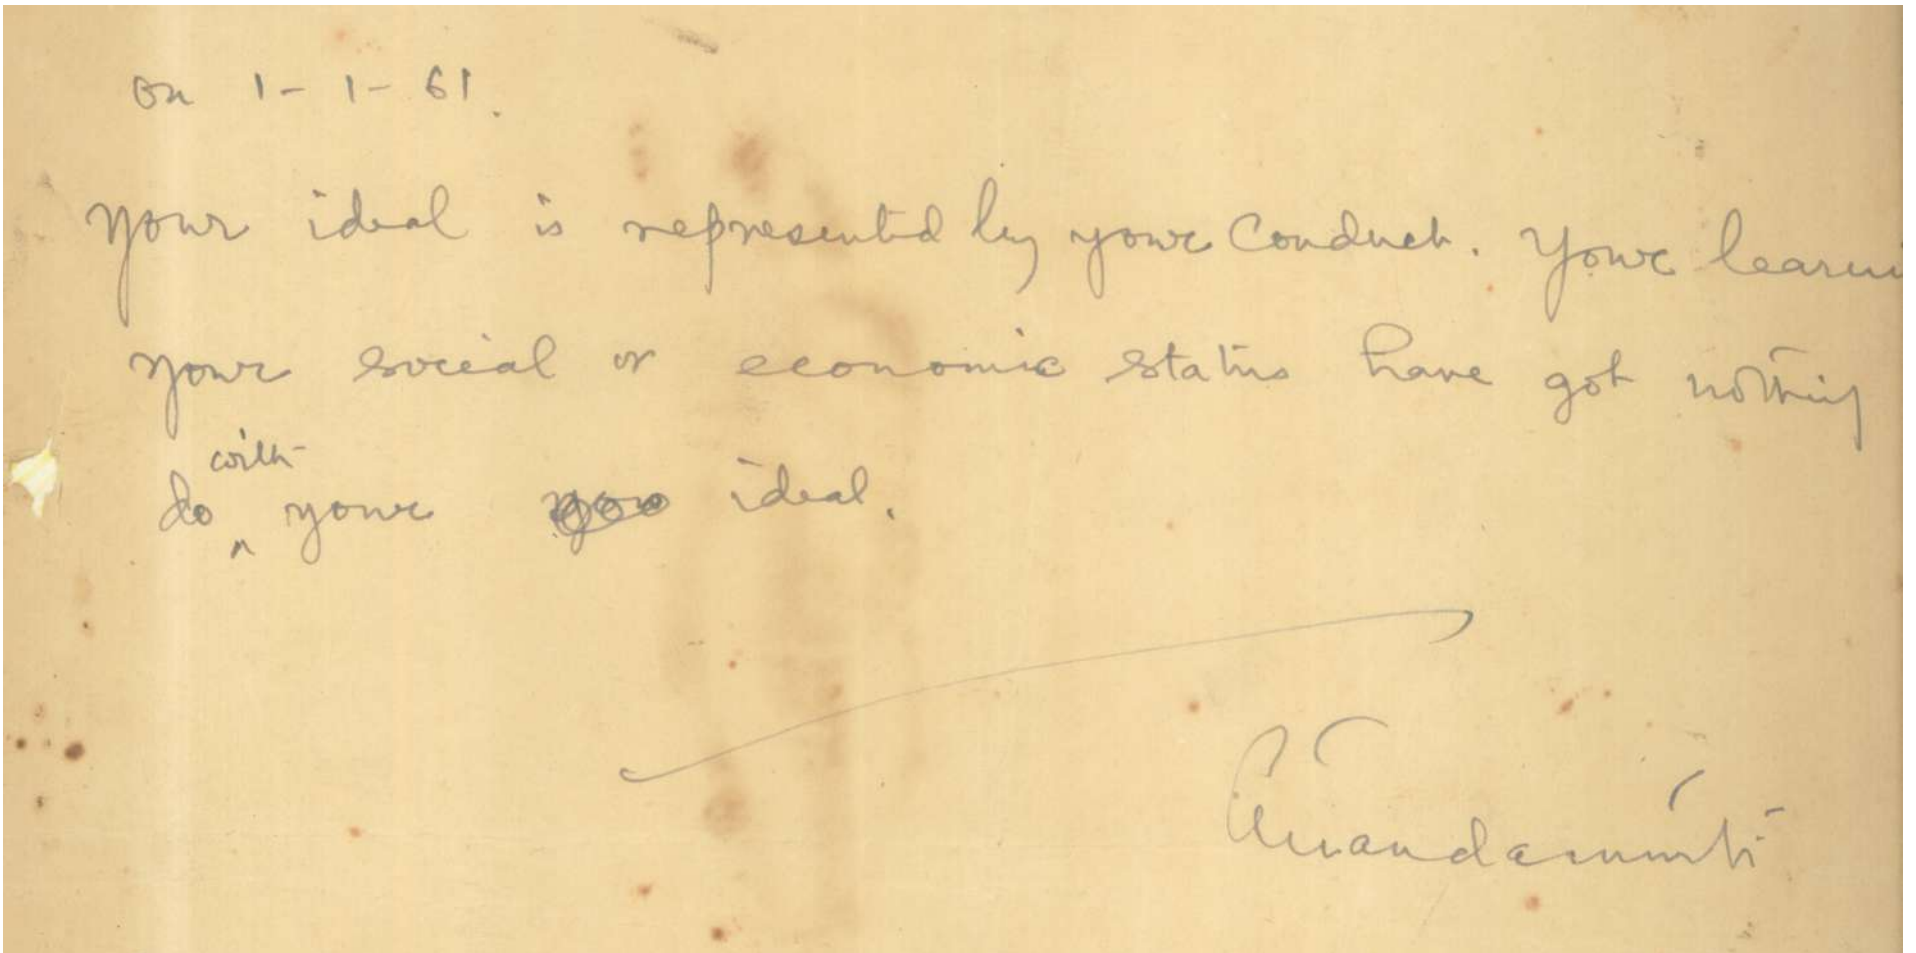 on 1-1-61.
Your ideal is represented by your conduct. Your learni
your social or economic status have got nothing
do with your ideal.
Anandamurti